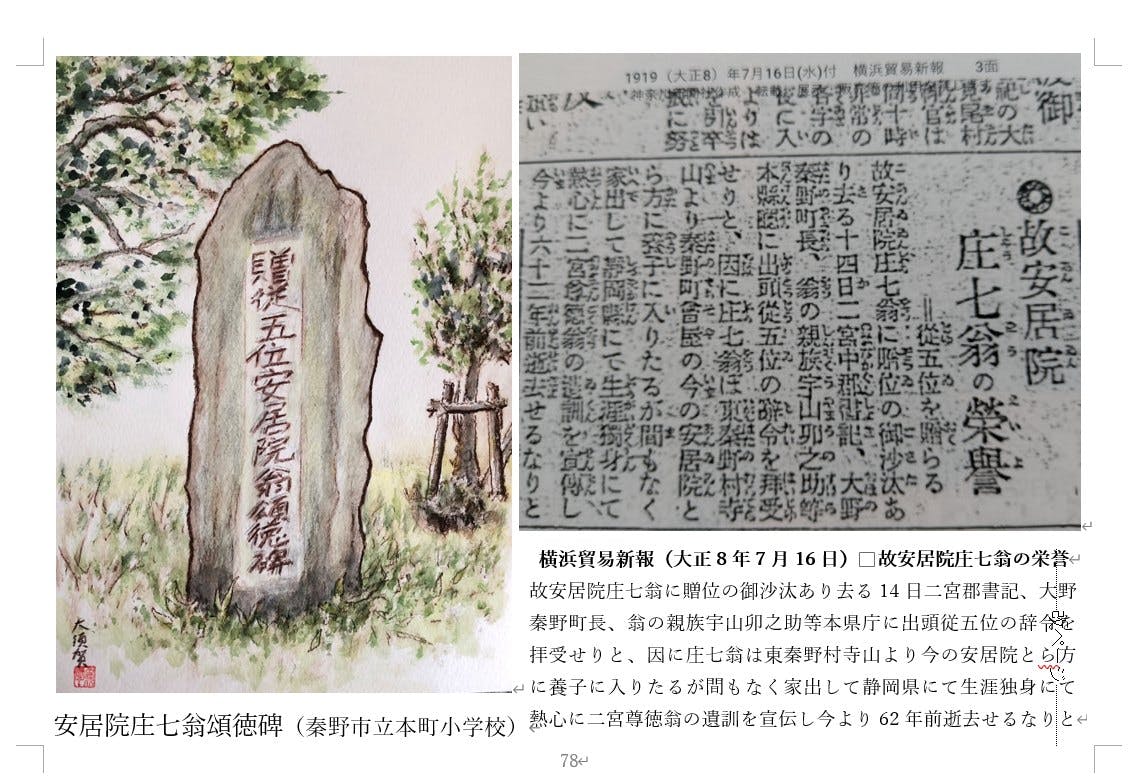 贈従五位安居院翁頌徳碑
大須賀
安居院庄七翁頌徳碑（秦野市立本町小学校）
1919（大正8）年7月16日(水)付　横浜貿易新報　3面
故安居院
庄七翁の榮譽
＝従五位を贈らる
故安居院庄七翁に贈位の御沙汰あ
り去る十四日二宮中郡書記、大野
秦野町長、翁の親族宇山卯之助等
本縣廳に出頭従五位の辞令を拝受
せりと、因に庄七翁は東秦野村寺
山より秦野町曾屋の今の安居院と
ら方に養子に入りたるが間もなく
家出して静岡縣にて生涯獨身にて
熱心に二宮尊徳翁の遺訓を宣傳し
今より六十二年前逝去せるなりと
横浜貿易新報（大正8年7月16日）□故安居院庄七翁の栄誉
故安居院庄七翁に贈位の御沙汰あり去る14日二宮郡書記、大野
秦野町長、翁の親族宇山卯之助等本県庁に出頭従五位の辞令を
拝受せりと、因に庄七翁は東秦野村寺山より今の安居院とら方
に養子に入りたるが間もなく家出して静岡県にて生涯独身にて
熱心に二宮尊徳翁の遺訓を宣伝し今より62年前逝去せるなりと
78